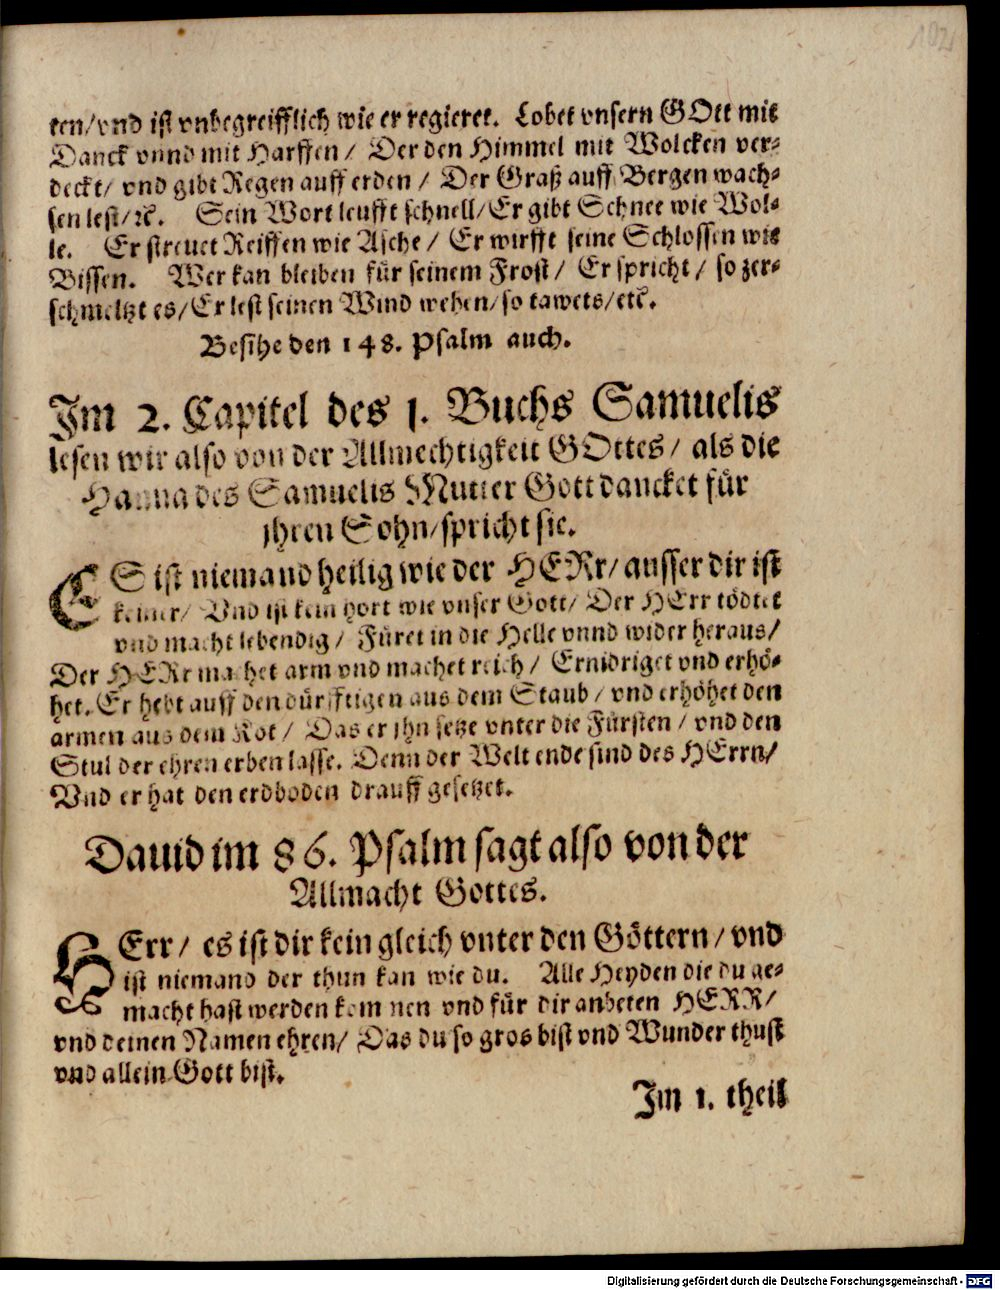 102
ten/vnd ist vnbegreifflich wie er regieret. Lobet vnsern GOtt mit
Danck vnnd mit Harffen / Der den Himmel mit Wolcken ver-
deckt/ vnd gibt Regen auff erden / Der Graß auff Bergen wach-
sen lest/ꝛc. Sein Wort leufft schnell/Er gibt Schnee wie Wol-
le. Er strewet Reiffen wie Asche / Er wirfft seine Schlossen wie
Bissen. Wer kan bleiben für seinem Frost / Er spricht / so zer-
schmeltzt es/Er lest seinen Wind wehen/so tawets/etc.
Besihe den 148. Psalm auch.
Im 2. Capitel des 1. Buchs Samuelis
lesen wir also von der Allmechtigkeit GOttes / als die
Hanna des Samuelis Mutter Gott dancket für
jhren Sohn/spricht sie.
ES ist niemand heilig wie der HERr/ ausser dir ist
keiner/ Vnd ist kein hort wie vnser Gott/ Der HErr tödtet
vnd macht lebendig / Füret in die Helle vnnd wider heraus/
Der HERr machet arm vnd machet reich / Ernidriget vnd erhö-
het. Er hebt auff den dürfftigen aus dem Staub / vnd erhöhet den
armen aus dem Kot / Das er jhn setze vnter die Fürsten / vnd den
Stul der ehren erben lasse. Denn der Welt ende sind des HErrn/
Vnd er hat den erdboden drauff gesetzet.
Dauid im 86. Psalm sagt also von der
Allmacht Gottes.
HErr/ es ist dir kein gleich vnter den Göttern / vnd
ist niemand der thun kan wie du. Alle Heyden die du ge-
macht hast werden kommen vnd für dir anbeten HERR/
vnd deinen Namen ehren/ Das du so gros bist vnd Wunder thust
vnd allein Gott bist.
Im 1. theil
Digitalisierung gefördert durch die Deutsche Forschungsgemeinschaft - DFG